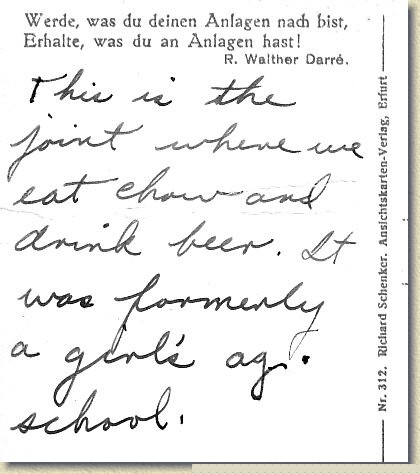 Werde, was du deinen Anlagen nach bist,
Erhalte, was du an Anlagen hast!
R. Walther Darré.
This is the
joint where we
eat chow and
drink beer. It
was formerly
a girl's ag.
school.
Nr. 312. Richard Schenker. Ansichtskarten-Verlag, Erfurt